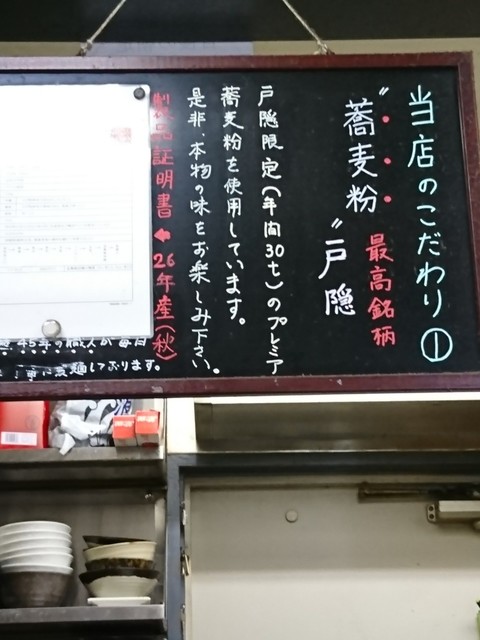 当店のこだわり①
"蕎麦粉"戸隠
最高銘柄
戸隠限定(年間30t)のプレミア
蕎麦粉を使用しています。
是非、本物の味をお楽しみ下さい。
製品証明書←26年産(秋)
45年の職人が毎日
製麺しております。